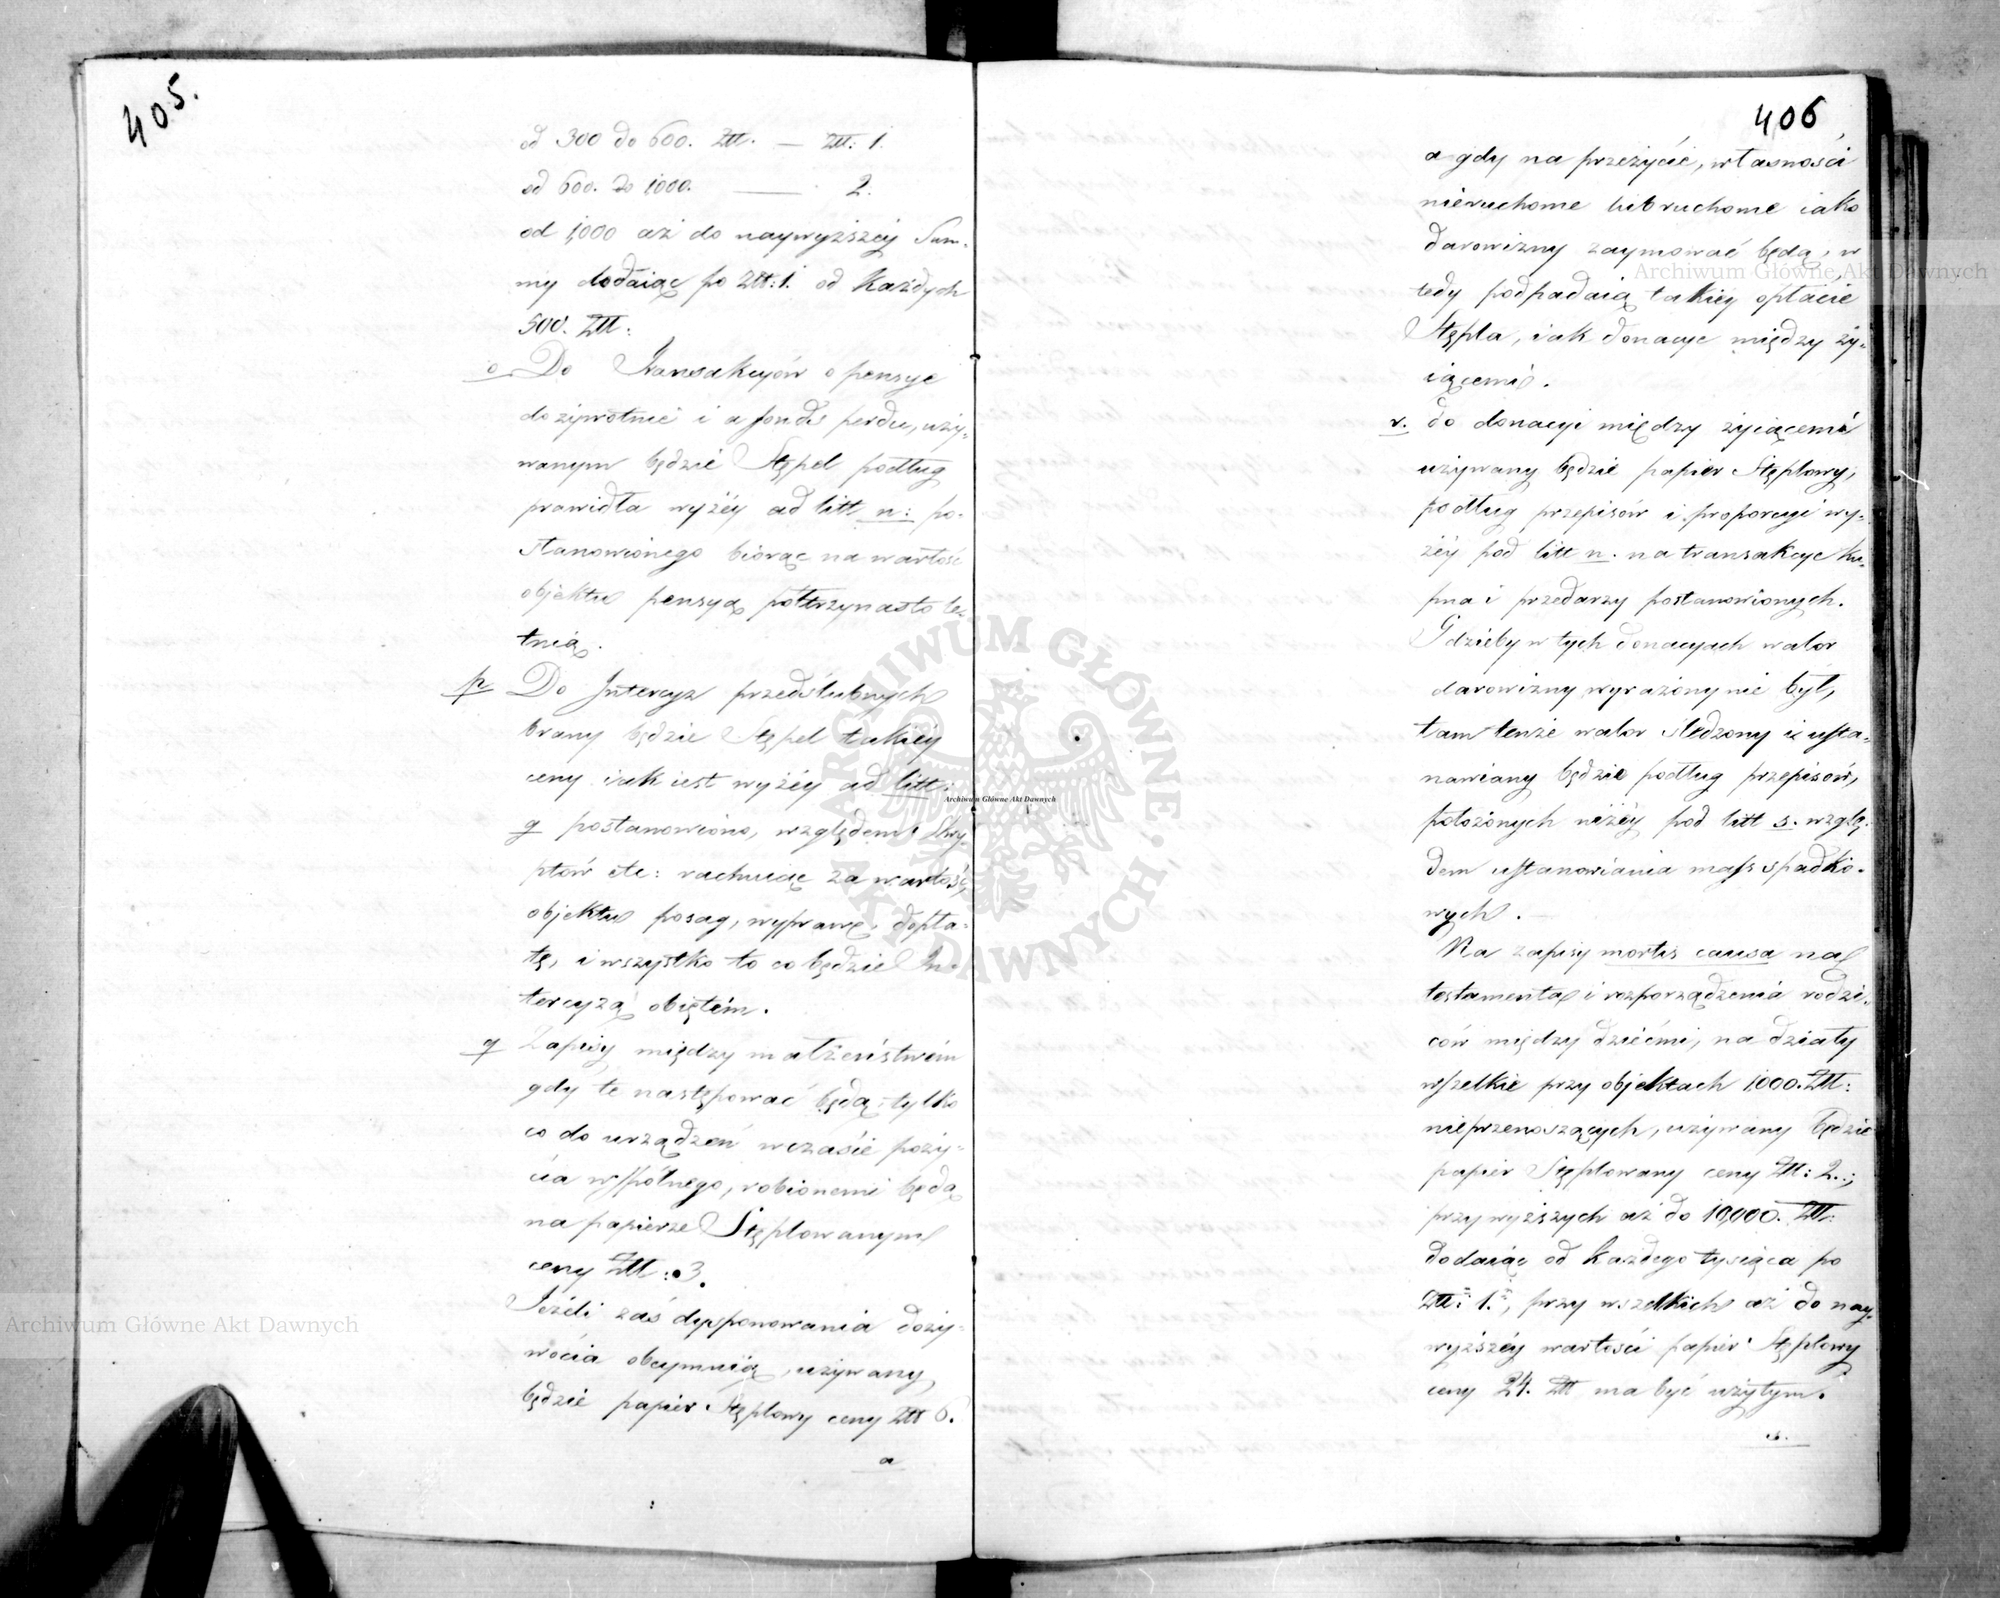 405.
od 300 do 600. Złł. — Złł: 1.
od 600. do 1,000. — 2.
od 1,000 aż do naywyższey Sum-
my dodaiąc po Złł: 1. od każdych
500. Złł:
o Do Transakcyów o pensye
dożywotnie i a fonds perdu, uży-
wanym będzie Stępel podług
prawidła wyżey ad litt n: po-
stanowionego biorąc na wartość
objektu pensyą półtrzynasto le-
tnią.
p Do Intercyz przedślubnych
brany będzie Stępel takiey
ceny iak iest wyżey ad litt:
g postanowiono, względem Skry-
ptów etc: rachuiąc za wartość
objektu posag, wyprawę, dopła-
tę, i wszystko to co będzie In-
tercyzą obiętém.
q Zapisy między małżeństwem
gdy te następować będą tylko
co do urządzeń wczasie poży-
cia wspólnego, robionemi będą
na papierze Stęplowanym
ceny Złł: 3.
Jeżeli zaś dysponowania doży-
wocia obeymuią, używany
będzie papier Stęplowy ceny Złł 6.
a
406
a gdy na przeżycie, własności
nieruchome lub ruchome iako
darowizny zaymować będą, w
tedy podpadaią takiey opłacie
Stępla, iak donacye między ży-
iącemi.
r. do donacyi między żyiącemi
używany będzie papier Stęplowy,
podług przepisów i proporcyi wy-
żey pod litt n. na transakcye ku-
pna i przedarzy postanowionych.
Gdzieby w tych donacyach walor
darowizny wyrażony nie był,
tam tenże walor śledzony i usta-
nawiany będzie podług przepisów,
położonych niżey pod litt s. wzglę-
dem ustanowiania mass spadko-
wych.
Na zapisy mortis causa na
testamenta i rozporządzenia rodzi-
ców między dziećmi, na działy
wszelkie przy objektach 1,000. Złł:
nieprzenoszących, używany będzie
papier Stęplowany ceny Złł: 2.;
przy wyższych aż do 10,000. Złł:
dodaiąc od każdego tysiąca po
Złł: 1., przy wszelkich aż do nay-
wyższey wartości papier Stęplowy
ceny 24. Złł ma być użytym.
s.
Archiwum Główne Akt Dawnych
Archiwum Główne Akt Dawnych
Archiwum Główne Akt Dawnych
ARCHIWUM GŁÓWNE AKT DAWNYCH